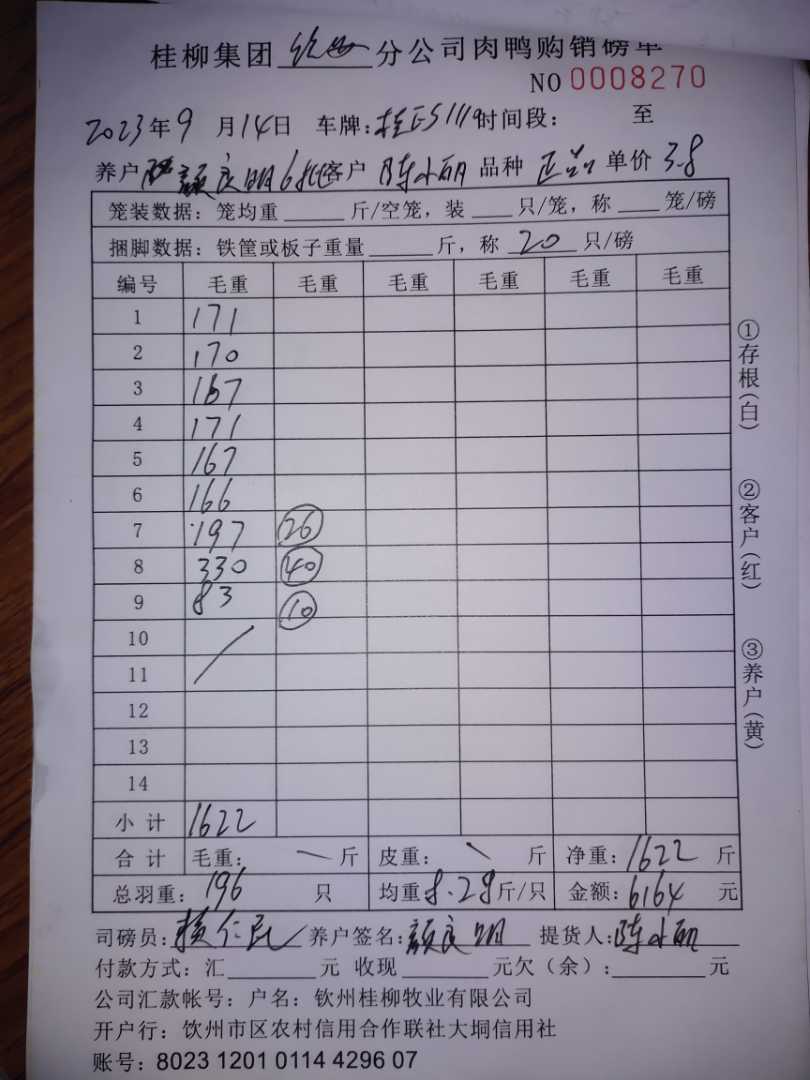 桂柳集团 钦州 分公司肉鸭购销磅单
NO 0008270
2023年9月14日 车牌:桂 时间段: 至
养户 颜良明6批 客户 陈小丽 品种 正品 单价 3.8
笼装数据: 笼均重 斤/空笼, 装 只/笼, 称 笼/磅
捆脚数据: 铁筐或板子重量 斤, 称 20 只/磅
编号 毛重 毛重 毛重 毛重 毛重 毛重
1 171
2 170
3 167
4 171
5 167
6 166
7 197 26
8 330 40
9 83 10
10
11
12
13
14
小计 1622
合计 毛重: 斤 皮重: 斤 净重: 1622 斤
总羽重: 196 只 均重 8.28 斤/只 金额: 6164 元
司磅员: 养户签名: 颜良明 提货人: 陈小丽
付款方式: 汇 元 收现 元欠(余): 元
公司汇款帐号: 户名: 钦州桂柳牧业有限公司
开户行: 钦州市区农村信用合作联社大垌信用社
账号: 8023 1201 0114 4296 07
①存根(白)
②客户(红)
③养户(黄)